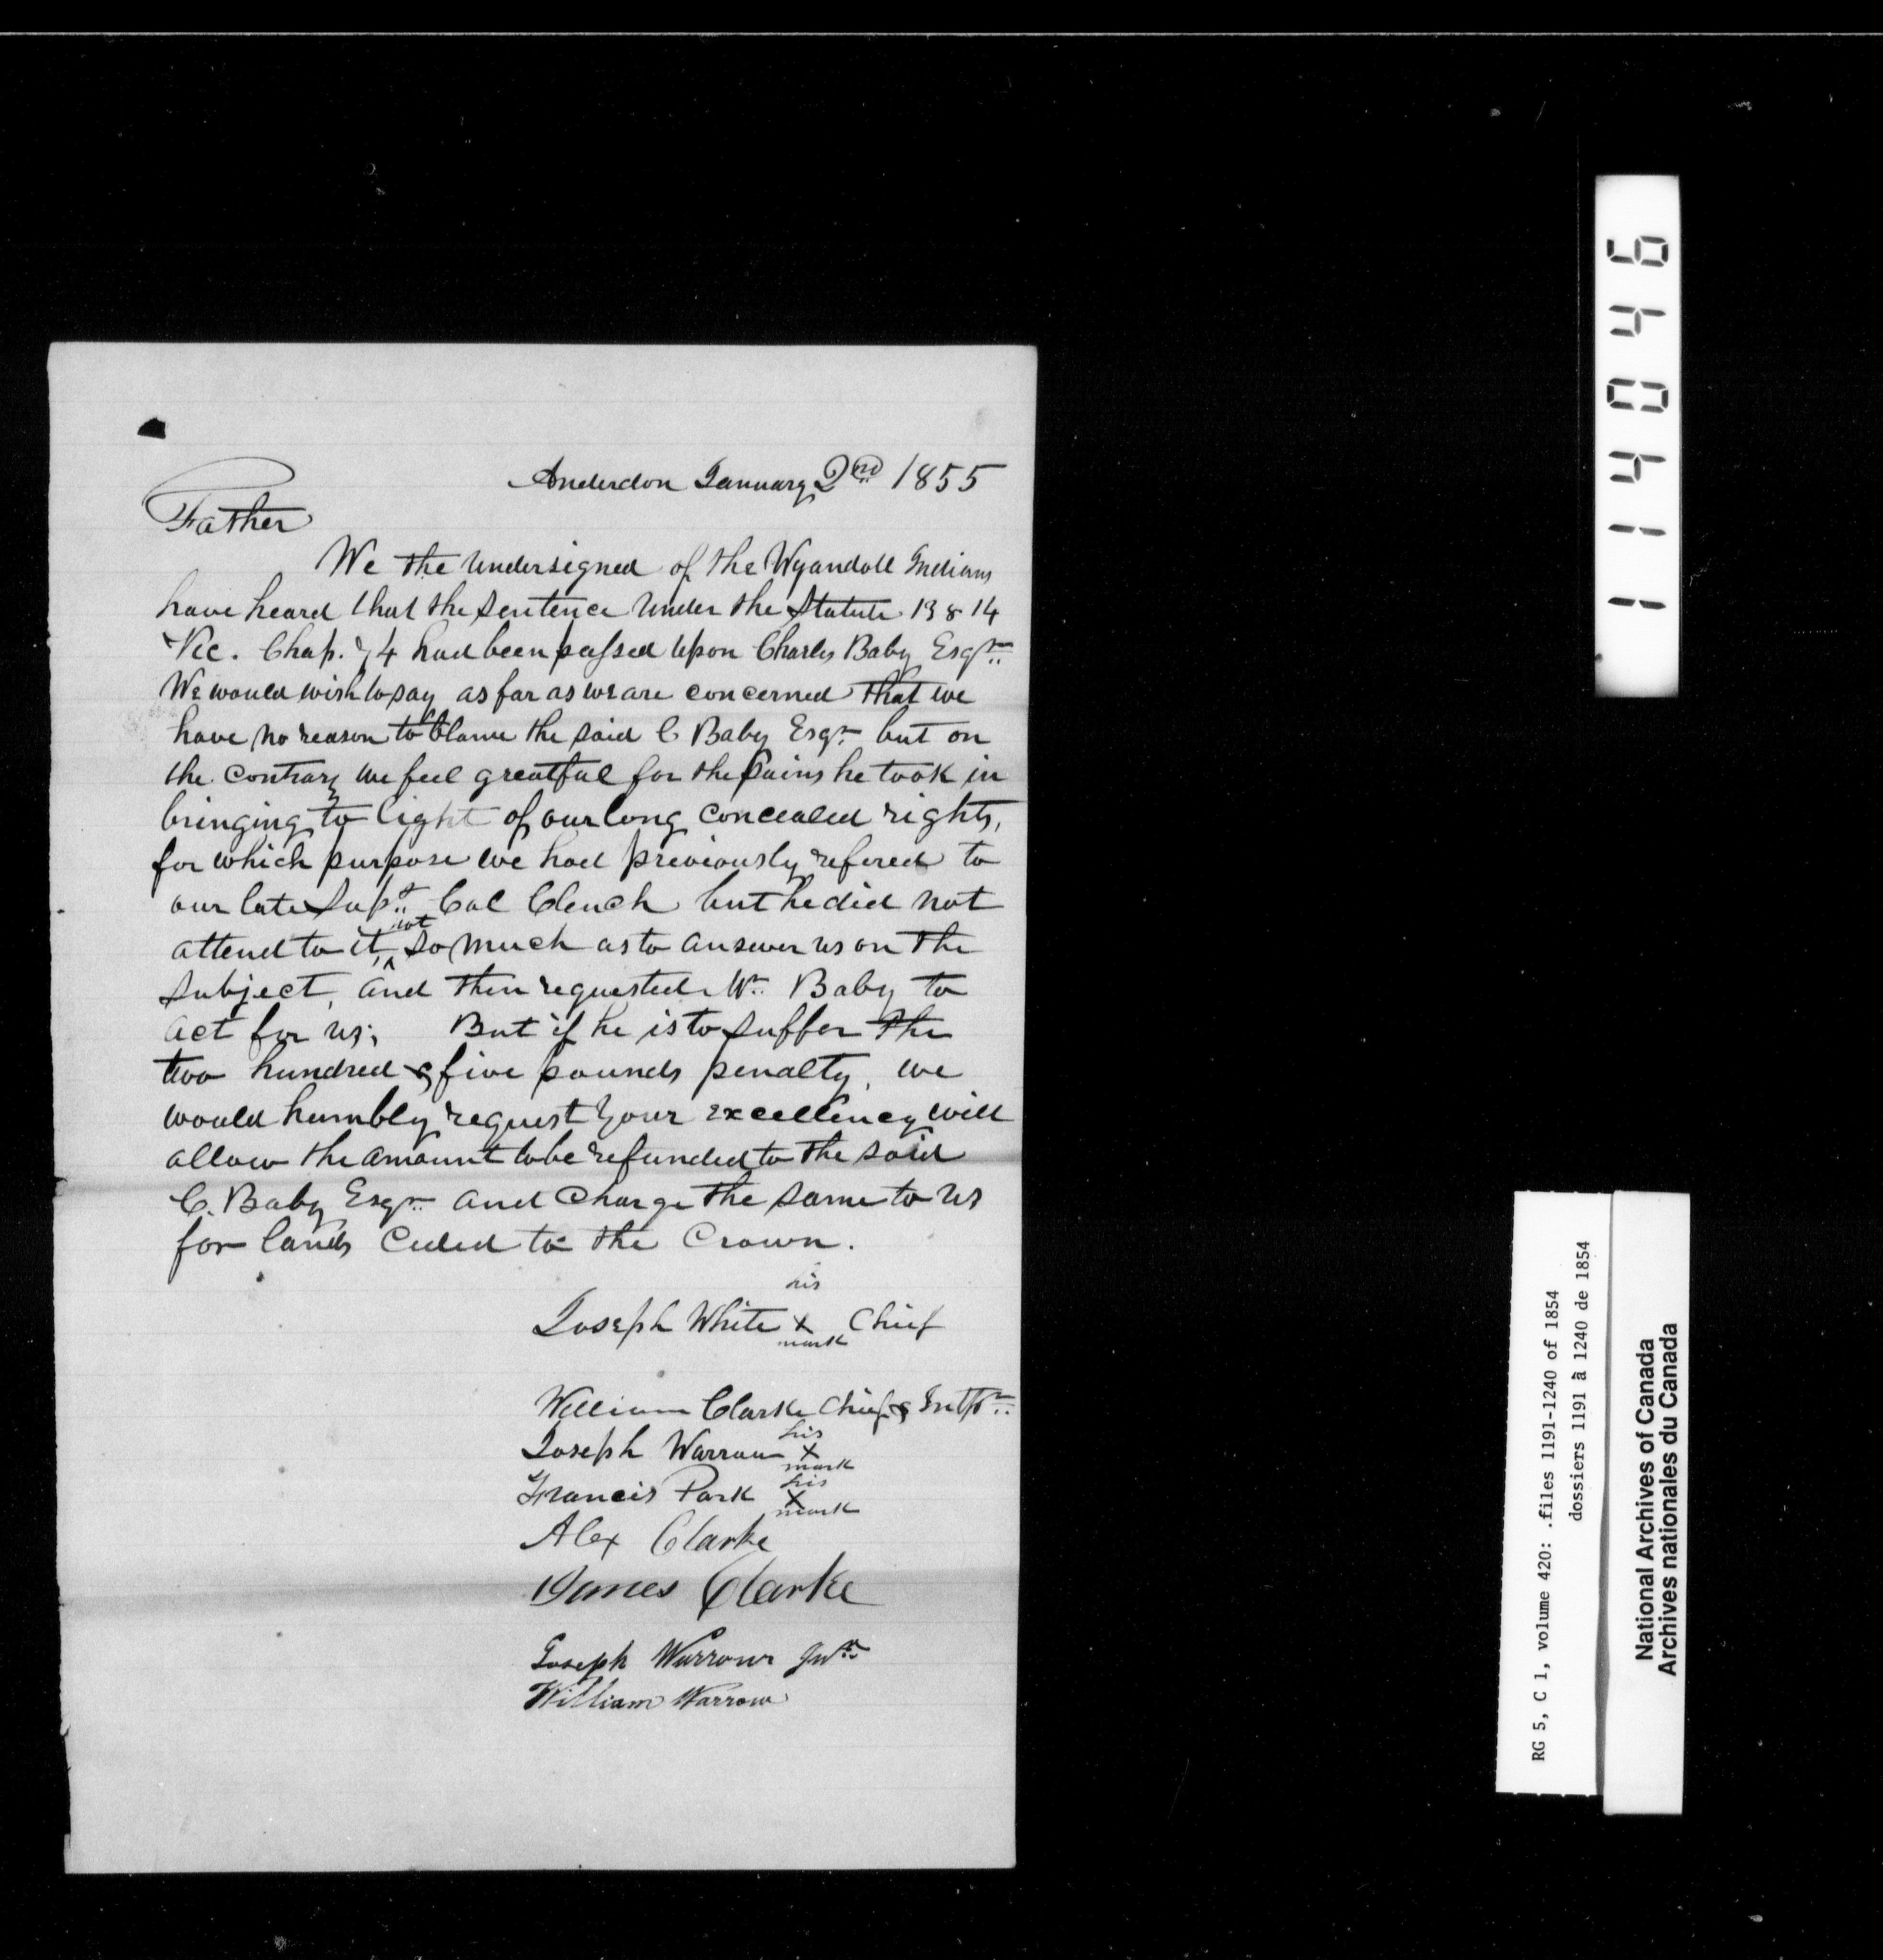 Anderdon January 2nd 1855
Father
We the undersigned of the Wyandott Indians
have heard that the sentence under the Statute 13 & 14
Vic. Chap. 74 had been passed upon Charles Baby Esqr.
We would wish to say as far as we are concerned that we
have no reason to blame the said C Baby Esqr. but on
the contrary we feel greatful for the pains he took in
bringing to light of our long concealed rights,
for which purpose we had previously refered to
our late Supt. Col Clench but he did not
attend to it, not so much as to answer us on the
subject, and then requested Mr. Baby to
act for us; But if he is to suffer the
two hundred & five pounds penalty, we
would humbly request your excellency will
allow the amount to be refunded to the said
C. Baby Esqr. and charge the same to us
for lands Ceded to the Crown.
his
Joseph White X Chief
mark
William Clarke Chief & Intpr.
his
Joseph Warrow X
mark
his
Francis Park X
mark
Alex Clarke
James Clarke
Joseph Warrow Jnr.
William Warrow
114046
RG 5, C 1, volume 420: .files 1191-1240 of 1854
dossiers 1191 à 1240 de 1854
National Archives of Canada
Archives nationales du Canada